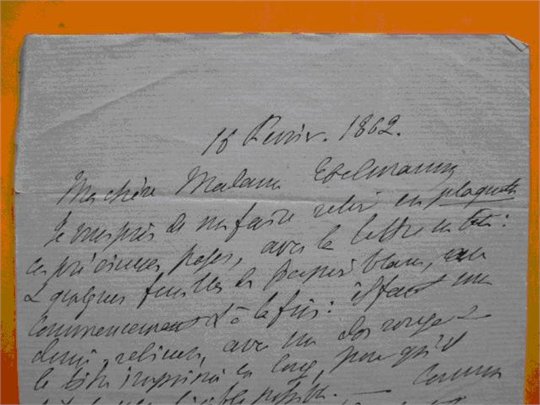 16 février. 1862.
Ma chère Madame Edelmann
Je vous prie de me faire relier en plaquette
ces précieuses pages, avec la lettre en tête:
& quelques feuilles de papier blanc, au
commencement & à la fin: il faut une
demi reliure, avec un dos rouge
le titre imprimé en long, pour qu'il